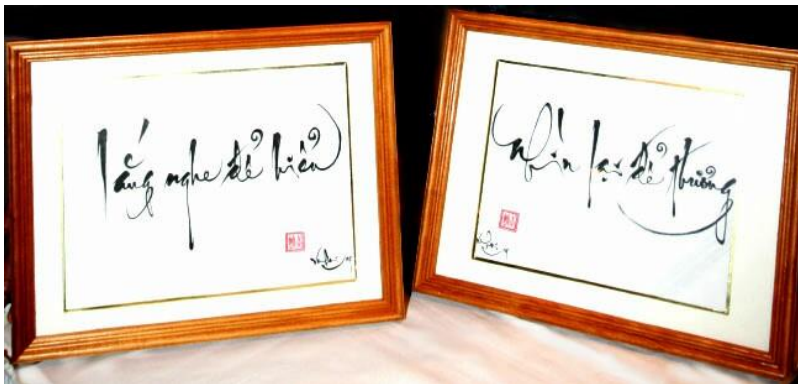 lắng nghe để hiểu
nhìn lại để thương